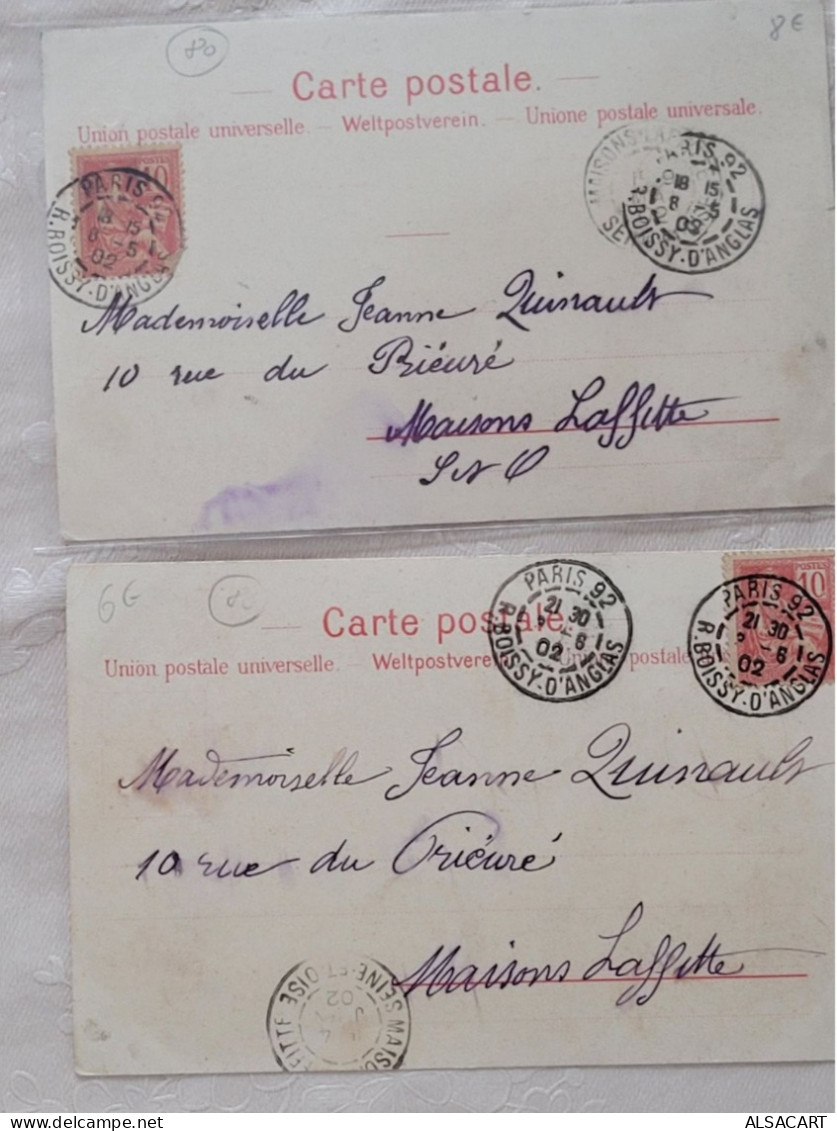 80
8€
Carte postale.
Union postale universelle. – Weltpostverein. – Unione postale universale.
10 POSTES
PARIS 92
18 15
8 - 5
02
R. BOISSY-D'ANGLAS
MAISONS
SEI
PARIS 92
18 15
8 - 5
02
R. BOISSY-D'ANGLAS
Mademoiselle Jeanne Quinault
10 rue du Prieuré
Maisons Laffitte
S et O
6€
Carte postale.
Union postale universelle. – Weltpostverein postale
PARIS 92
21 30
- 6
02
R. BOISSY-D'ANGLAS
POSTES
10
PARIS 92
21 30
- 6
02
R. BOISSY-D'ANGLAS
Mademoiselle Jeanne Quinault
10 rue du Prieuré
Maisons Laffitte
SEINE-ET-OISE
MAISO FITTE
02
delcampe.net
ALSACART